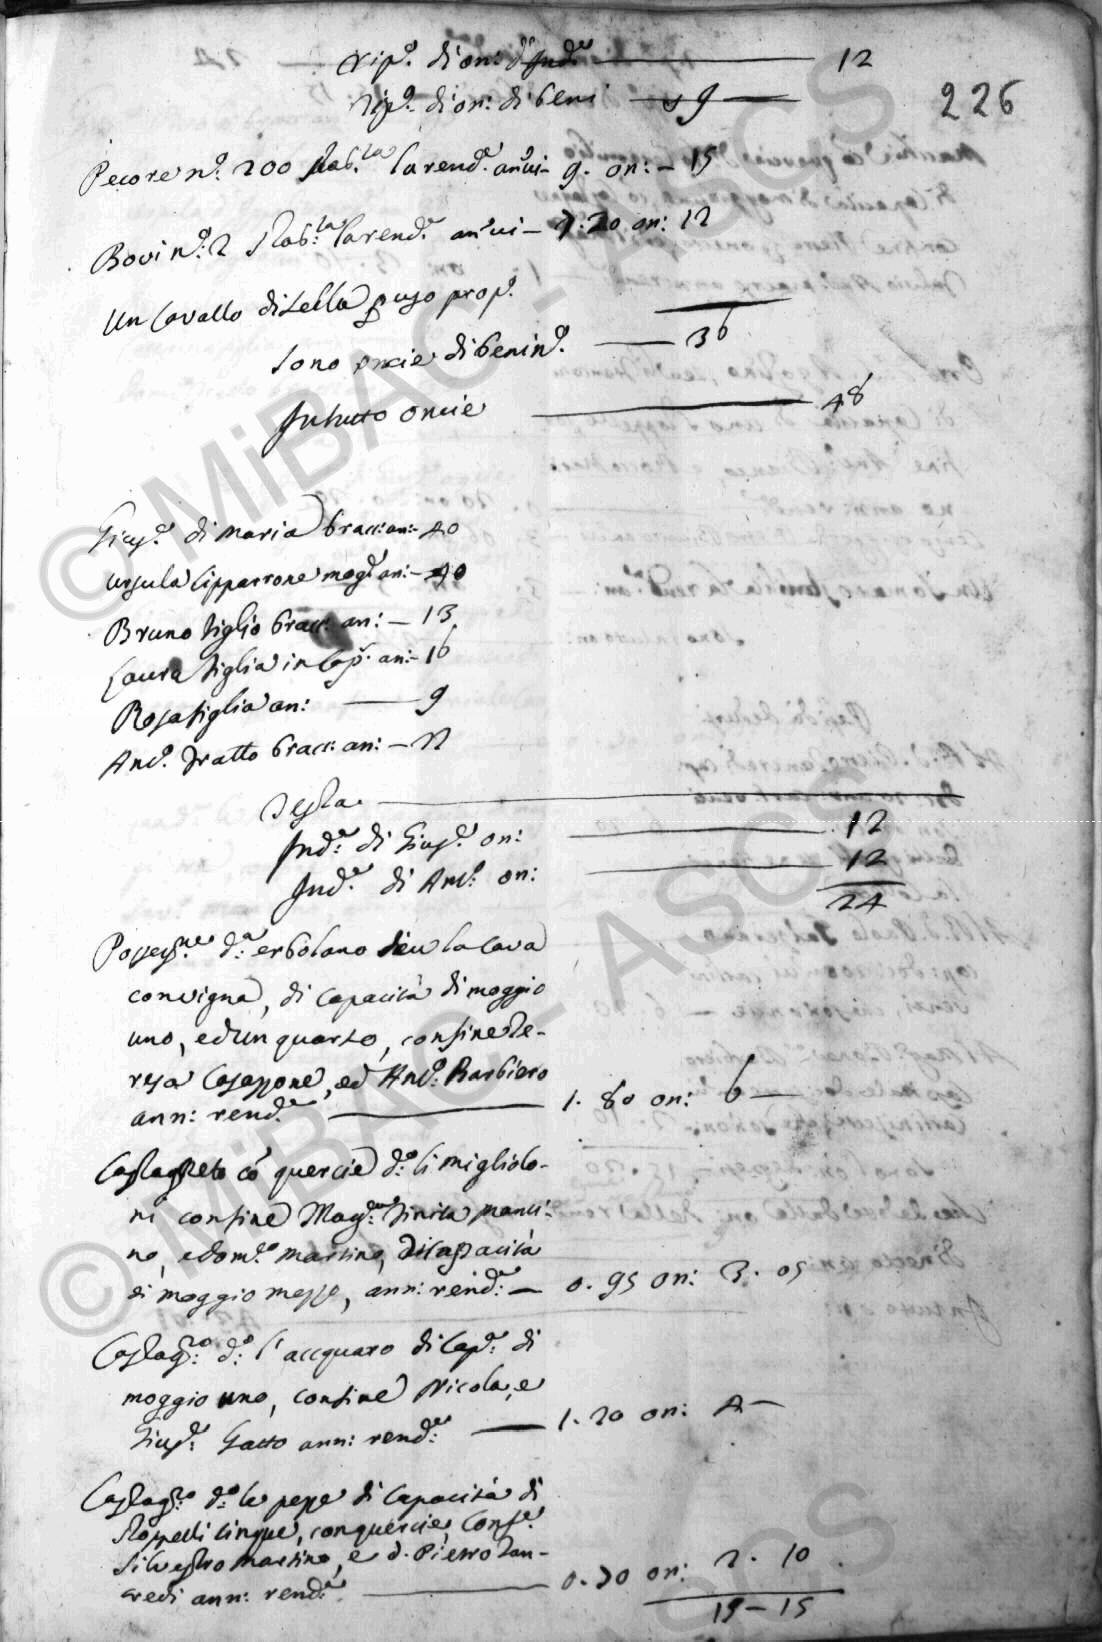 Rip.º di on: d'Ind.ª ——— 12
Rip.º di on: di beni — 9 —
226
Pecore n.º 200 stab.ta la rend.ª annui – 9. on: – 15
Bovi n.º 2 stab.ta la rend.ª annui – 7.20 on: 12
Un Cavallo di sella p uso prop.º
Sono oncie di beni n.º ——— 36
In tutto oncie ——— 48
Gius.e di Maria bracc: an: – 40
Ursula Cipparrone mog.e an: – 40
Bruno figlio bracc: an: – 13
Laura figlia in cap.e an: – 16
Rosa figlia an: —— 9
Ant.º Dratto bracc: an: – 22
Testa ———
Ind.ª di Gius.e on: ——— 12
Ind.ª di Ant.º on: ——— 12
24
Possess.ne d.ª erbolano seu la Cava
con vigna, di capacità di moggio
uno, ed un quarto, confine Te-
resa Casappone, ed Ant.º Barbiero
ann: rend.ª ——— 1. 80 on: 6 —
Castagneto có quercie d.º li miglioło-
ni confine Mag.co
no, e Dom.co Martino, di capacità
di moggio mezzo, ann: rend.ª — 0. 95 on: 3. 05
Castag.to d.º l'accquaro di Cap.tà di
moggio uno, confine Nicola, e
Gius.e Gatto ann: rend.ª —— 1. 20 on: 4 —
Castag.to d.º le pezze di capacità di
stoppelli cinque, con quercie, Conf.e
Silvestro Martino, e d. Pietro Tan-
credi ann: rend.ª ——— 0. 70 on: 2. 10
15 – 15
© MiBAC - ASCS
© MiBAC - ASCS
ASCS